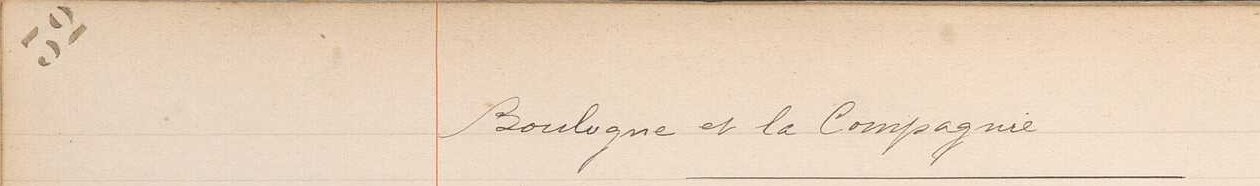 52
Boulogne et la Compagnie